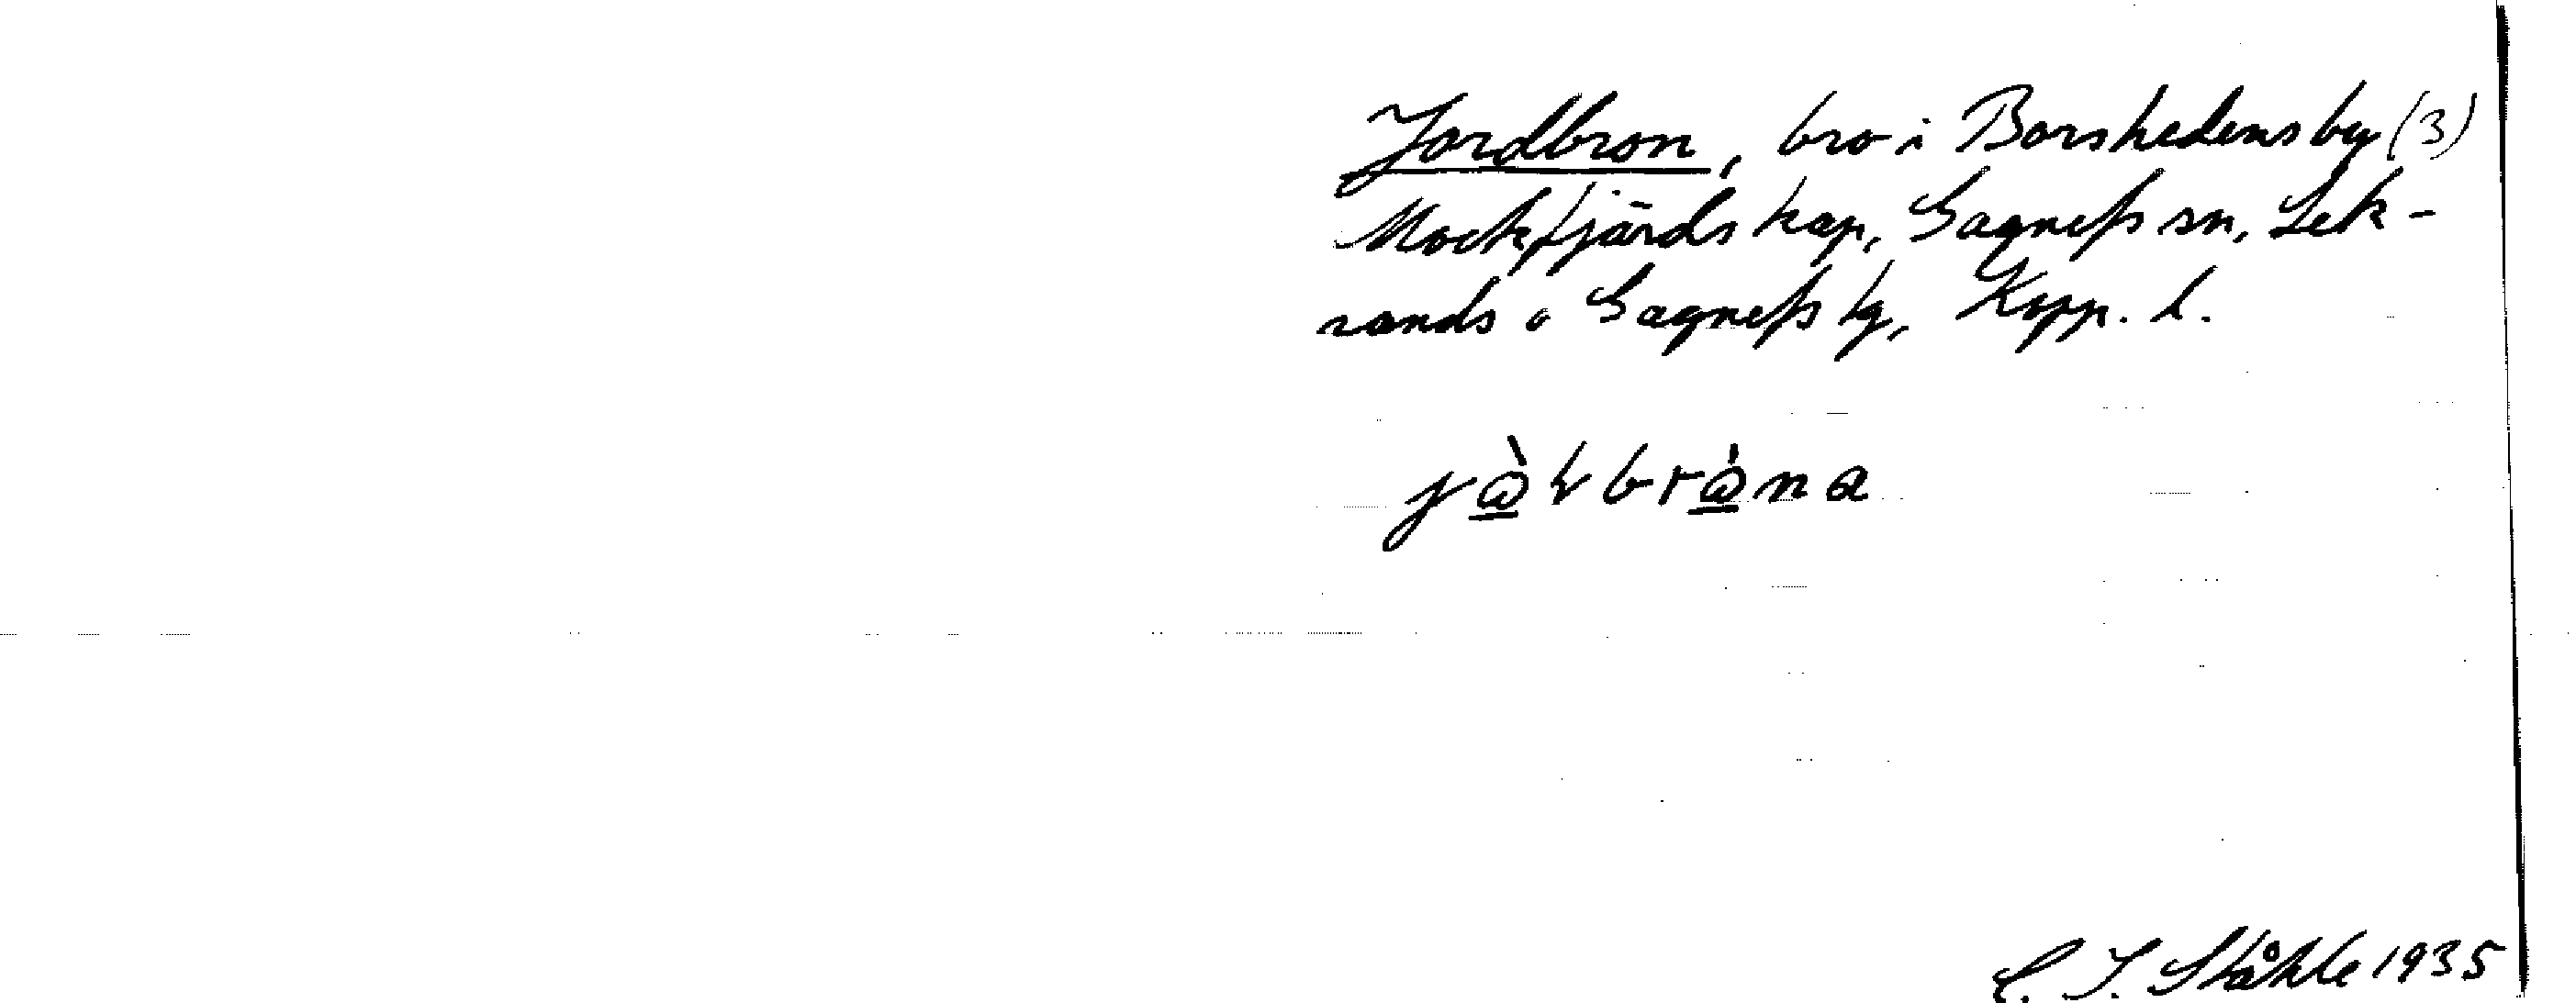 Jordbron, bro i Borshedens by (3)
Mockfjärds kap, Gagnefs sn, Lek-
sands o Gagnefs tg, Kopp. l.
C. I. Ståhle 1935